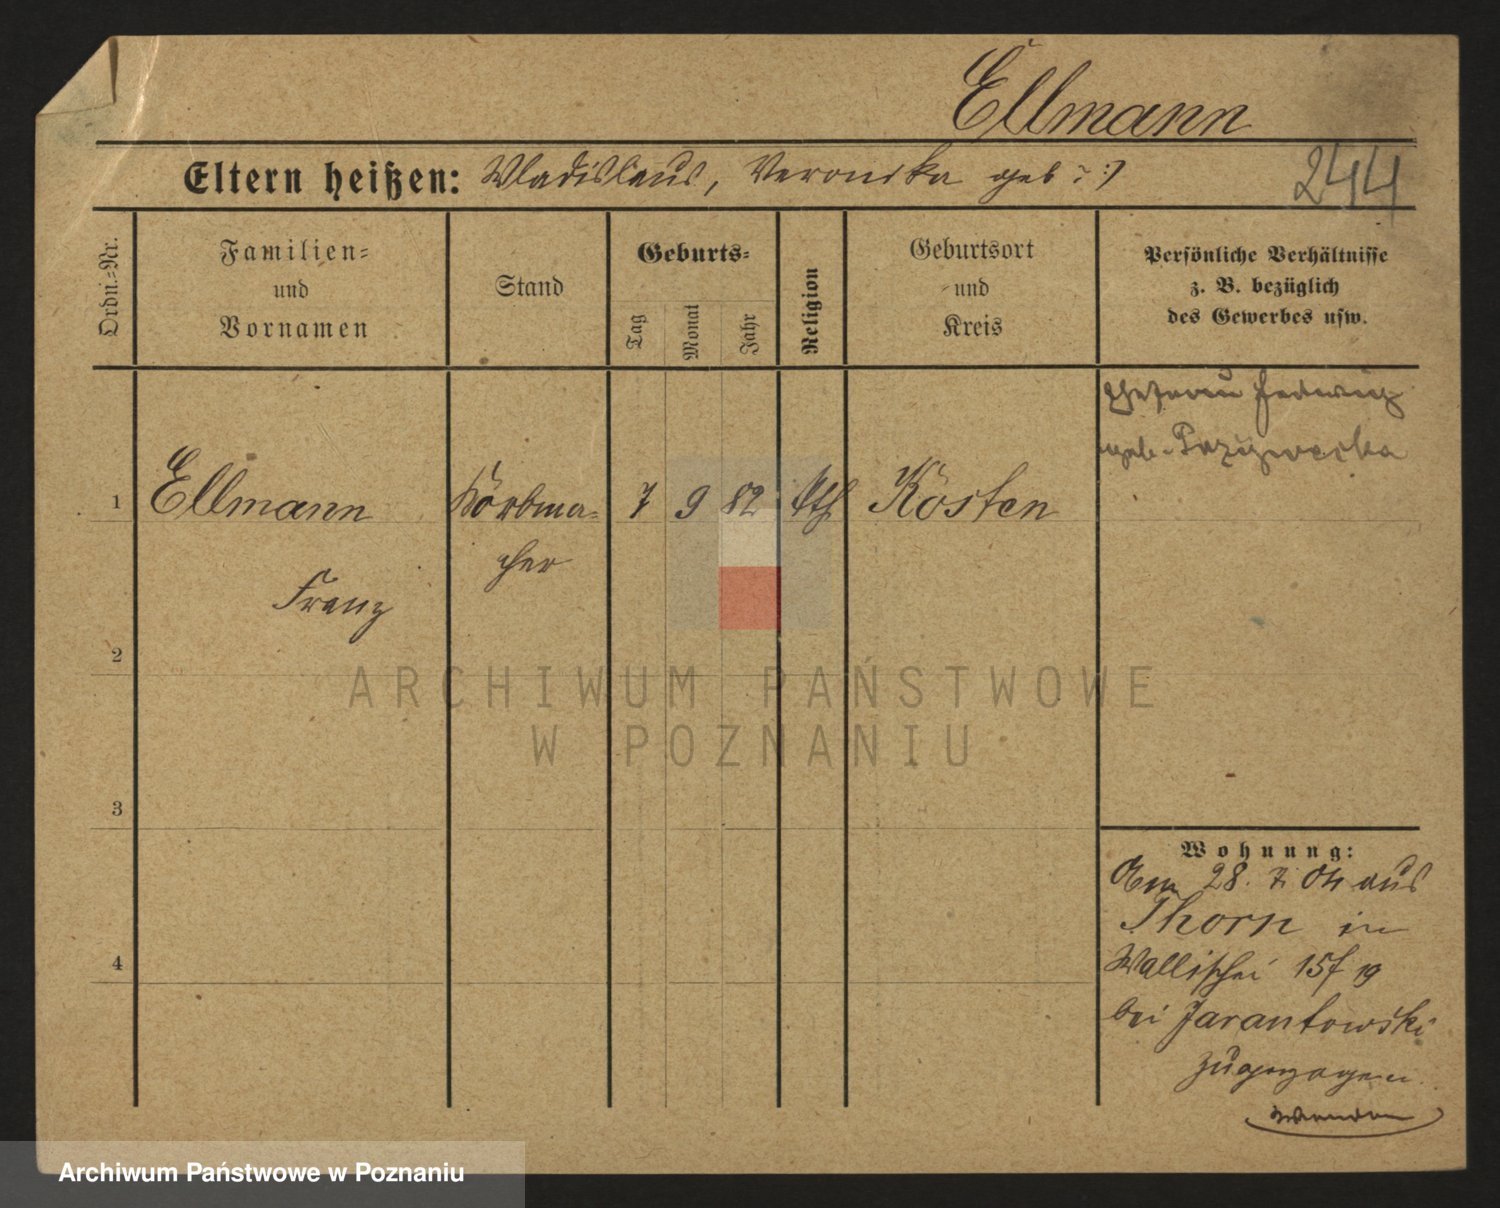 Ellmann
Eltern heißen: Wladislaus, Veronika geb :?)
244
Ordn.-Nr.
Familien-
und
Vornamen
Stand
Geburts-
Tag
Monat
Jahr
Religion
Geburtsort
und
Kreis
Persönliche Verhältnisse
z. B. bezüglich
des Gewerbes usw.
Ehefrau Hedwig
geb.
1 Ellmann Korbma- 7 9 82 kth Kosten
cher
Franz
2
3
4
ARCHIWUM PAŃSTWOWE
W POZNANIU
Wohnung:
Am 28. 7. 04 aus
Thorn in
Wallischei 15f 19
bei Jarantowski
zugezogen
Wenden
Archiwum Państwowe w Poznaniu